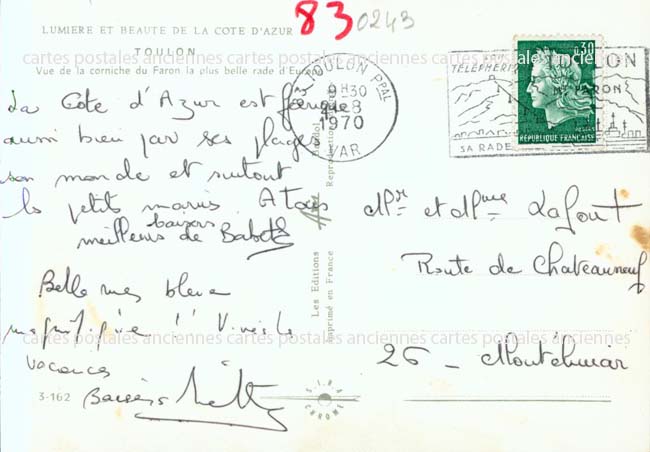 83
0243
LUMIERE ET BEAUTE DE LA COTE D'AZUR
cartes postales anciennes cartes postales anciennes cartes postales anciennes
TOULON
Vue de la corniche du Faron la plus belle rade d'Europe
TOULON PPAL
9H30
8
1970
VAR
TÉLÉPHÉRIQUE TOULON
MT FARON
SA RADE
0,30
REPUBLIQUE FRANÇAISE
POSTES
La Côte d'Azur est féerique
aussi bien par ses plages
son monde et surtout
les petits marins A tous
meilleurs baisers de Babeth
Belle mer bleue
magnifique !! Vives les
vacances
Baisers
Mr et Mme Lafont
Route de Chateauneuf
26 - Montélimar
Les Editions
Imprimé en France
Reproduction
cartes postales anciennes cartes postales anciennes cartes postales anciennes
3-162
S.I.R.A.
CHROME